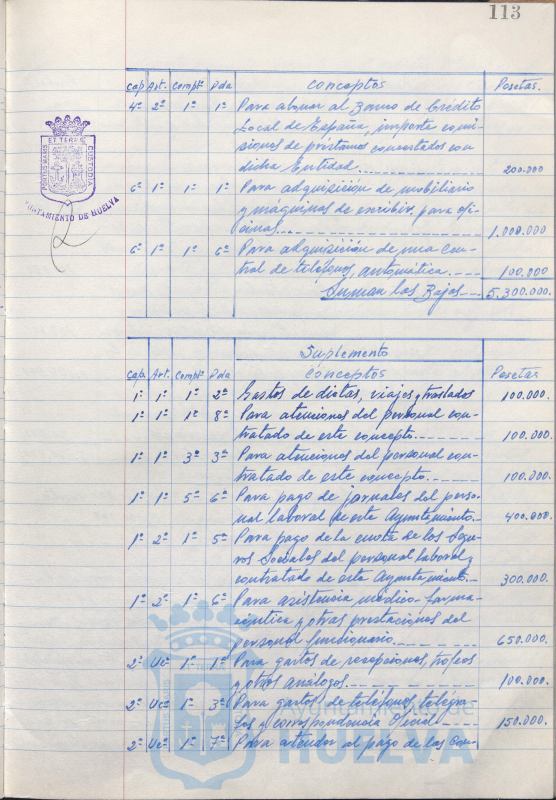 113
Cap. Art. Comptº Pda Conceptos Pesetas.
4º 2º 1º 1ª Para abonar al Banco de Crédito
Local de España, importe comi-
siones de préstamos concertados con
dicha Entidad. 200.000
6º 1º 1º 1ª Para adquisición de mobiliario
y máquinas de escribir, para ofi-
cinas 1.000.000
6º 1º 1º 6ª Para adquisición de una cen-
tral de teléfonos, automática. 100.000
Suman las Bajas 5.300.000.
PORTUS MARIS ET TERRE CUSTODIA
AYUNTAMIENTO DE HUELVA
Suplemento
Cap. Art. Comptº Pda Conceptos Pesetas
1º 1º 1º 2ª Gastos de dietas, viajes y traslados 100.000.
1º 1º 1º 8ª Para atenciones del personal con-
tratado de este concepto. 100.000.
1º 1º 3º 3ª Para atenciones del personal con-
tratado de este concepto. 100.000.
1º 1º 5º 6ª Para pago de jornales del perso-
nal laboral de este Ayuntamiento. 400.000.
1º 2º 1º 5ª Para pago de la cuota de los Segu-
ros Sociales del personal laboral y
contratado de este Ayuntamiento. 300.000.
1º 2º 1º 6ª Para asistencia médico-farma-
céutica y otras prestaciones del
personal funcionario. 650.000.
2º Uº 1º 1ª Para gastos de recepciones, trofeos
y otros análogos. 100.000.
2º Uº 1º 3ª Para gastos de teléfonos, telégra-
fos y correspondencia Oficial 150.000.
2º Uº 1º 7ª Para atender al pago de las con-
Ayuntamiento de
HUELVA